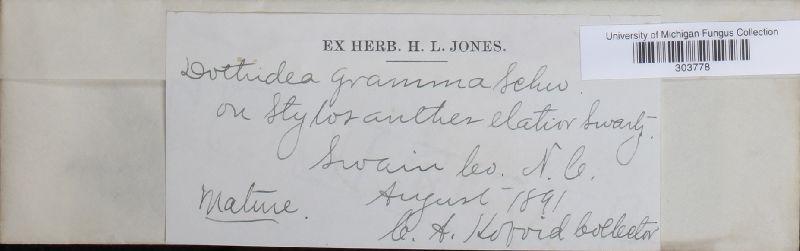 EX HERB. H. L. JONES.
University of Michigan Fungus Collection
303778
Dothidea gramma Schw.
on Stylosanthes elatior Swartz.
Swain Co. N. C.
Mature. August 1891
C. A. Kofoid Collector